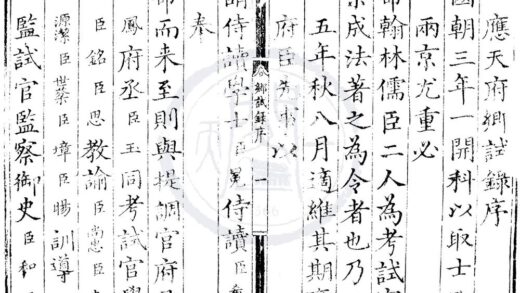 應天府鄉試錄序
國朝三年一開科以取士
兩京尤重必
命翰林儒臣二人為考試
成法著之為令者也乃
五年秋八月適維其期
府臣事以
鄉試錄序 一
侍讀學士臣冕侍讀臣
奉
命而来至則與提調官府
鳳府丞臣玉同考試官
臣銘臣思教諭臣尚忠臣
源潔臣世臣璋臣暘訓導
監試官監察御史臣和